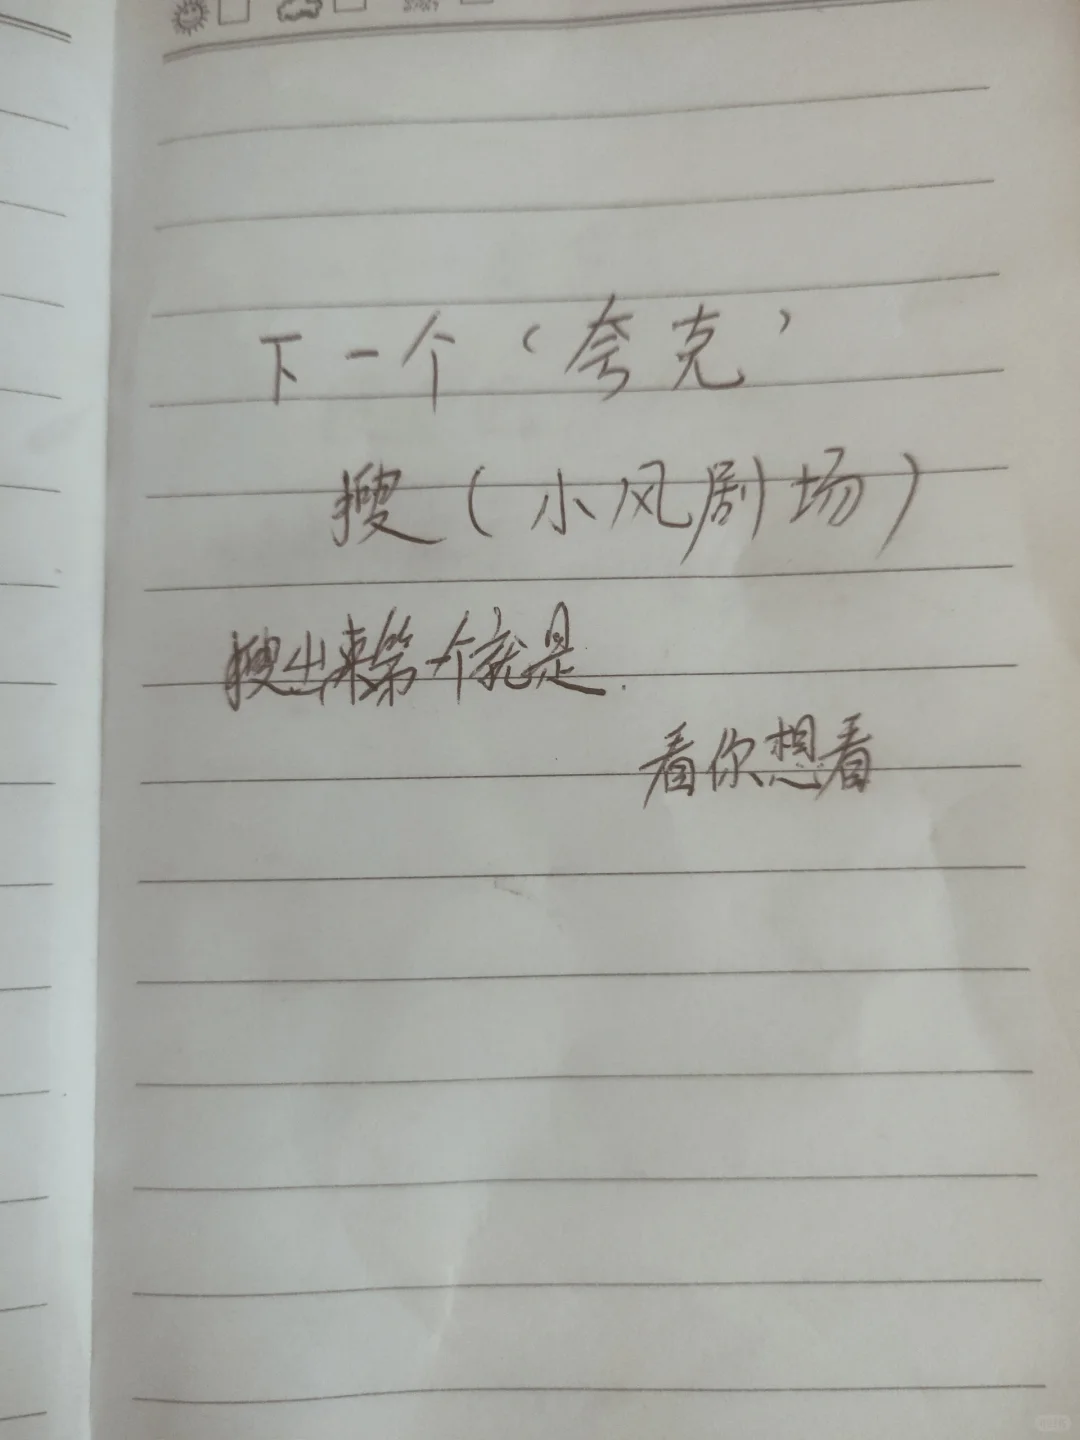 下一个‘夸克’
搜（小风剧场）
搜出来第一个就是.
看你想看